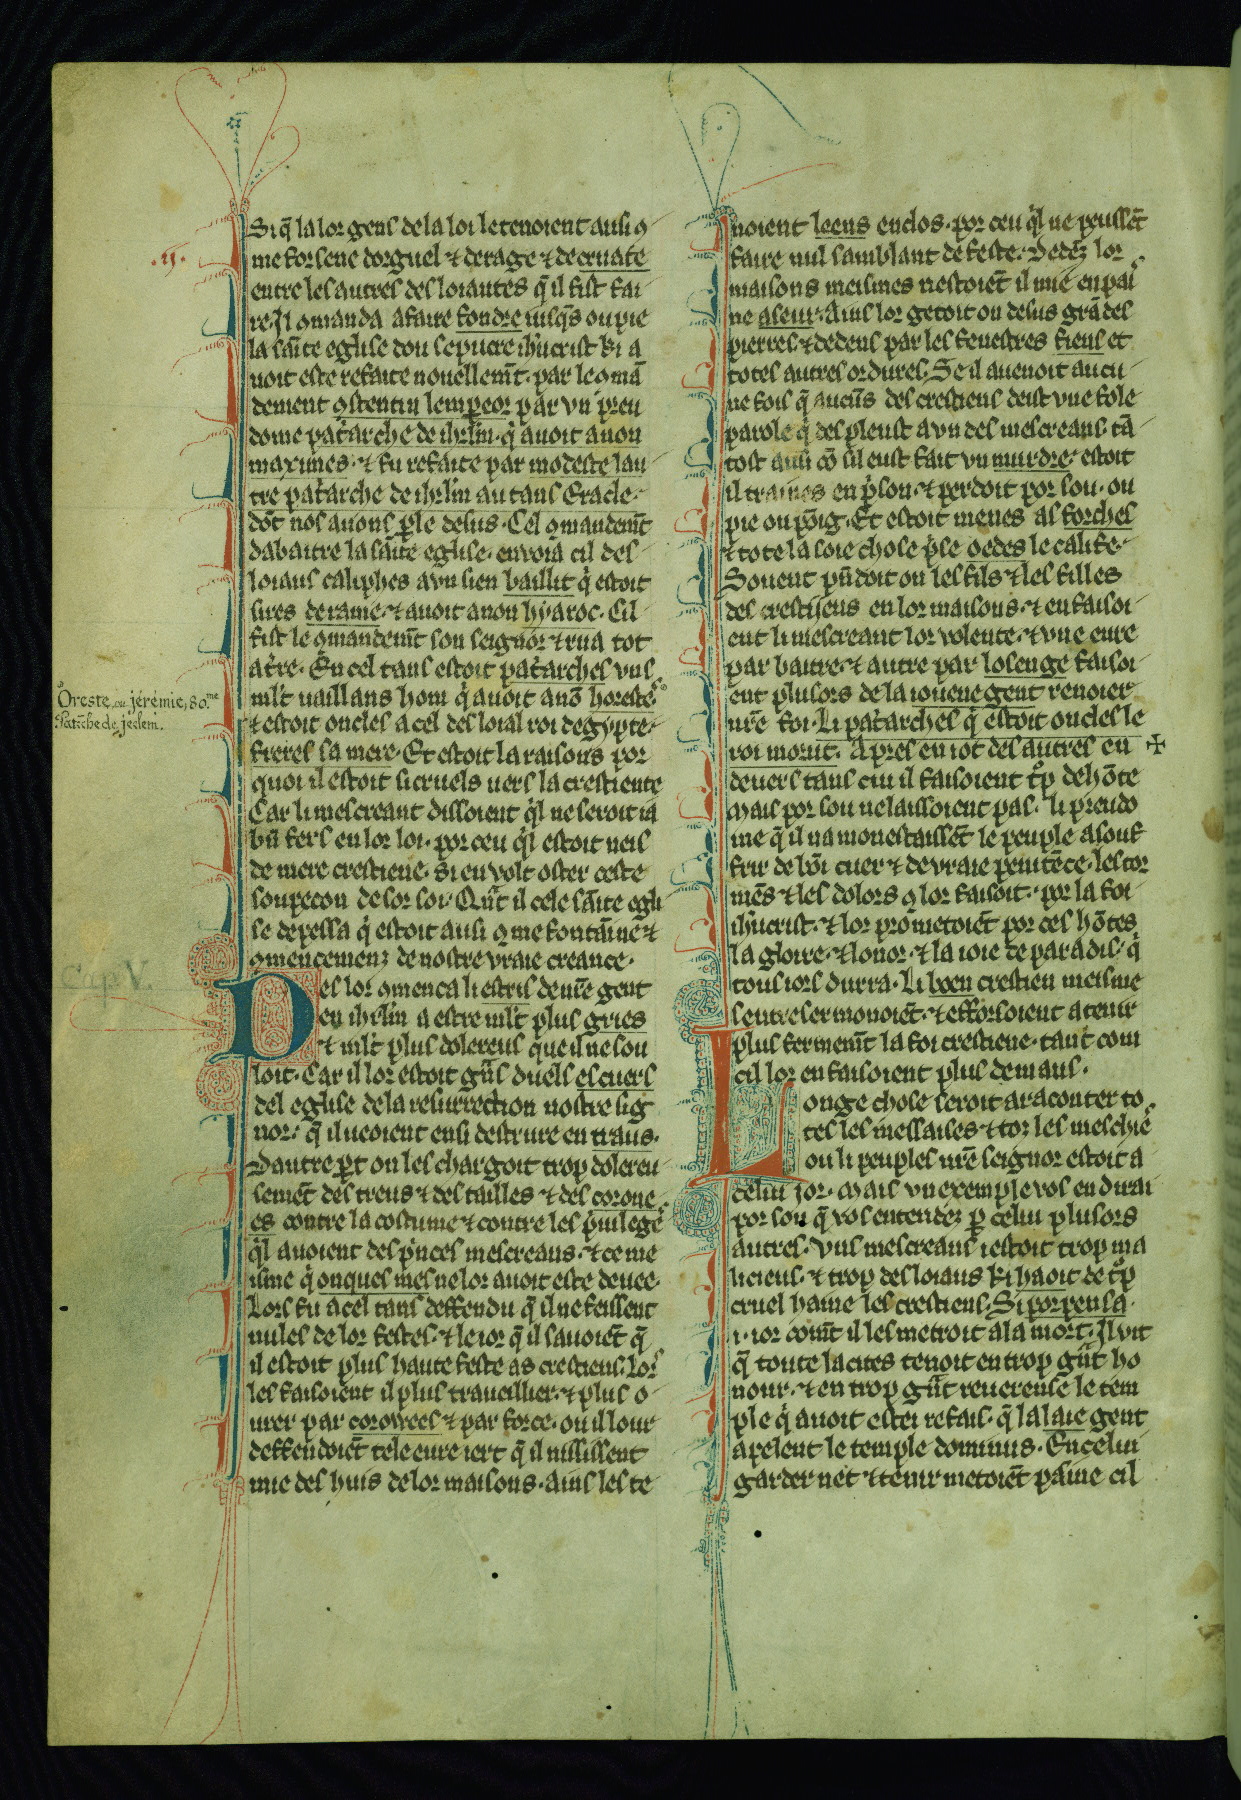 .ij.
Si q̄ la lor gens de la loi le tenoient ausi ꝯ
me forsene dorguel ⁊ derage ⁊ de cruate
entre les autres desloiautes q̄ il fist fai
re. Il ꝯmanda a faire fondre iusq̄s ou pie
la sāīte eglise dou sepucre ih'ucrist ki a
uoit este refaite nouellem̄t. par le ꝯmā
dement ꝯstentin lempeor par vn preu
dome pat'arche de ih'rl'm. q' auoit a non
maximes. ⁊ fu refaite par modeste lau
tre pat'arche de ih'rl'm au tans Eracle.
dōt nos auons ꝑle desus. Cel ꝯmandem̄t
dabatre la sāīte eglise. enuoia cil des
loiaus caliphes a vn sien baillit q' estoit
sires de rame. ⁊ auoit a non hyaroc. Cil
fist le ꝯmandem̄t son seignor ⁊ rua tot
at're. En cel tans estoit pat'arches vns
ml't uaillans hom q' auoit anō horeste.
⁊ estoit oncles a cel desloial roi degypte.
freres sa mere. Et estoit la raisons por
quoi il estoit si cruels uers la crestiente
Car li mescreant dissoient q'l ne seroit ia
bn̄ fers en lor loi. por ceu q'l estoit neis
de mere crestiene. si en volt oster ceste
soupecon de sor soi. Qūt il cele sāīte egli
se depessa q' estoit ausi ꝯme fontaīne ⁊
ꝯmencemenz de nostre vraie creance.
Oreste, ou jérémie, 80.me
Patr̄che de jeslem.
Cap V.
Des lor ꝯmenca li estris de nr̄e gent
en ih'rl'm a estre ml't plus gries
⁊ ml't plus dolereus que il ne sou
loit. Car il lor estoit gn̄s duels es cuers
del eglise de la resurrection nostre sig
nor. q̄ il ueoient ensi destrure en traus.
Dautre ꝑt on les chargoit trop dolereu
semēt des treus ⁊ des tailles ⁊ des coroue
es contre la costume ⁊ contre les p'uilege
q'l auoient des p'nces mescreans. ⁊ ce me
isme q' onques mes ne lor auoit este deuee.
Lors fu a cel tans deffendu q̄ il ne feissent
nules de lor festes. ⁊ le ior q̄ il sauoiēt q̄
il estoit plus haute feste as crestiens. Lors
les faisoient il plus traueillier. ⁊ plus o
urer par corowees ⁊ par force. ou il lour
deffendoiēt tele eure iert q̄ il nississent
mie des huis de lor maisons. ains les te
noient leens enclos. por ceu q'l ne peussēt
faire nul samblant de feste. Dedēz lor
maisons meismes nestoiēt il mie en pai
ne aseur. Ains lor getoit on desus grādes
pierres. ⁊ dedens par les fenestres fiens et
totes autres ordures. Se il auenoit aucu
ne fois q̄ aucūs des crestiens deist vne fole
parole q' despleust a vn des mescreans. tā
tost ausi cō sil eust fait vn murdre. estoit
il traines en p'son. ⁊ perdoit por sou. ou
pie ou poīg. Et estoit menes as forches
⁊ tote la soie chose p'se oedes le califfe.
Souent pn̄doit on les fils ⁊ les filles
des crestiens en lor maisons. ⁊ en faisoi
ent li mescreant lor volente. ⁊ vne eure
par batre. ⁊ autre par losenge faisoi
ent plusors de la iouene gent renoier
nr̄e foi. Li pat'arches q' estoit oncles le
roi morut. Apres en iot des autres en ✠
deuers tans cui il faisoient t'p de hōte
Mais por sou ne laissoient pas. li preudo
me q̄ il namonestaissēt le peuple a souf
frir de bōi cuer ⁊ de vraie penitēce. les tor
mēs ⁊ les dolors ꝯ lor faisoit. por la foi
ih'ucrist. ⁊ lor prometoiēt por ces hōtes
la gloire. ⁊ lonor. ⁊ la ioie de paradis. q'
tous iors durra. Li boen crestien meisme
sentresermonoiēt. ⁊ efforsoient a tenir
plus fermem̄t la foi crestiene. tant com
cil lor en faisoient plus de maus.
Longe chose seroit a raconter to
tes les messaises ⁊ toz les meschie
ou li peuples nr̄e seignor estoit a
celui ior. Mais vn exemple vos en dirai
por sou q̄ vos entendez ꝑ celui plusors
autres. Vns mescreans iestoit trop ma
licieus. ⁊ trop desloiaus ki haoit de t'p
cruel haine les crestiens. Si porpensa
.i. ior comt̄ il les metroit a la mort. Il vit
q̄ toute la cites tenoit en trop gn̄t ho
nour. ⁊ en trop gn̄t reuerense le tem
ple q' auoit estei refais. q̄ la laie gent
apelent le temple dominus. En celui
garder net ⁊ tenir metoiēt paīne cil